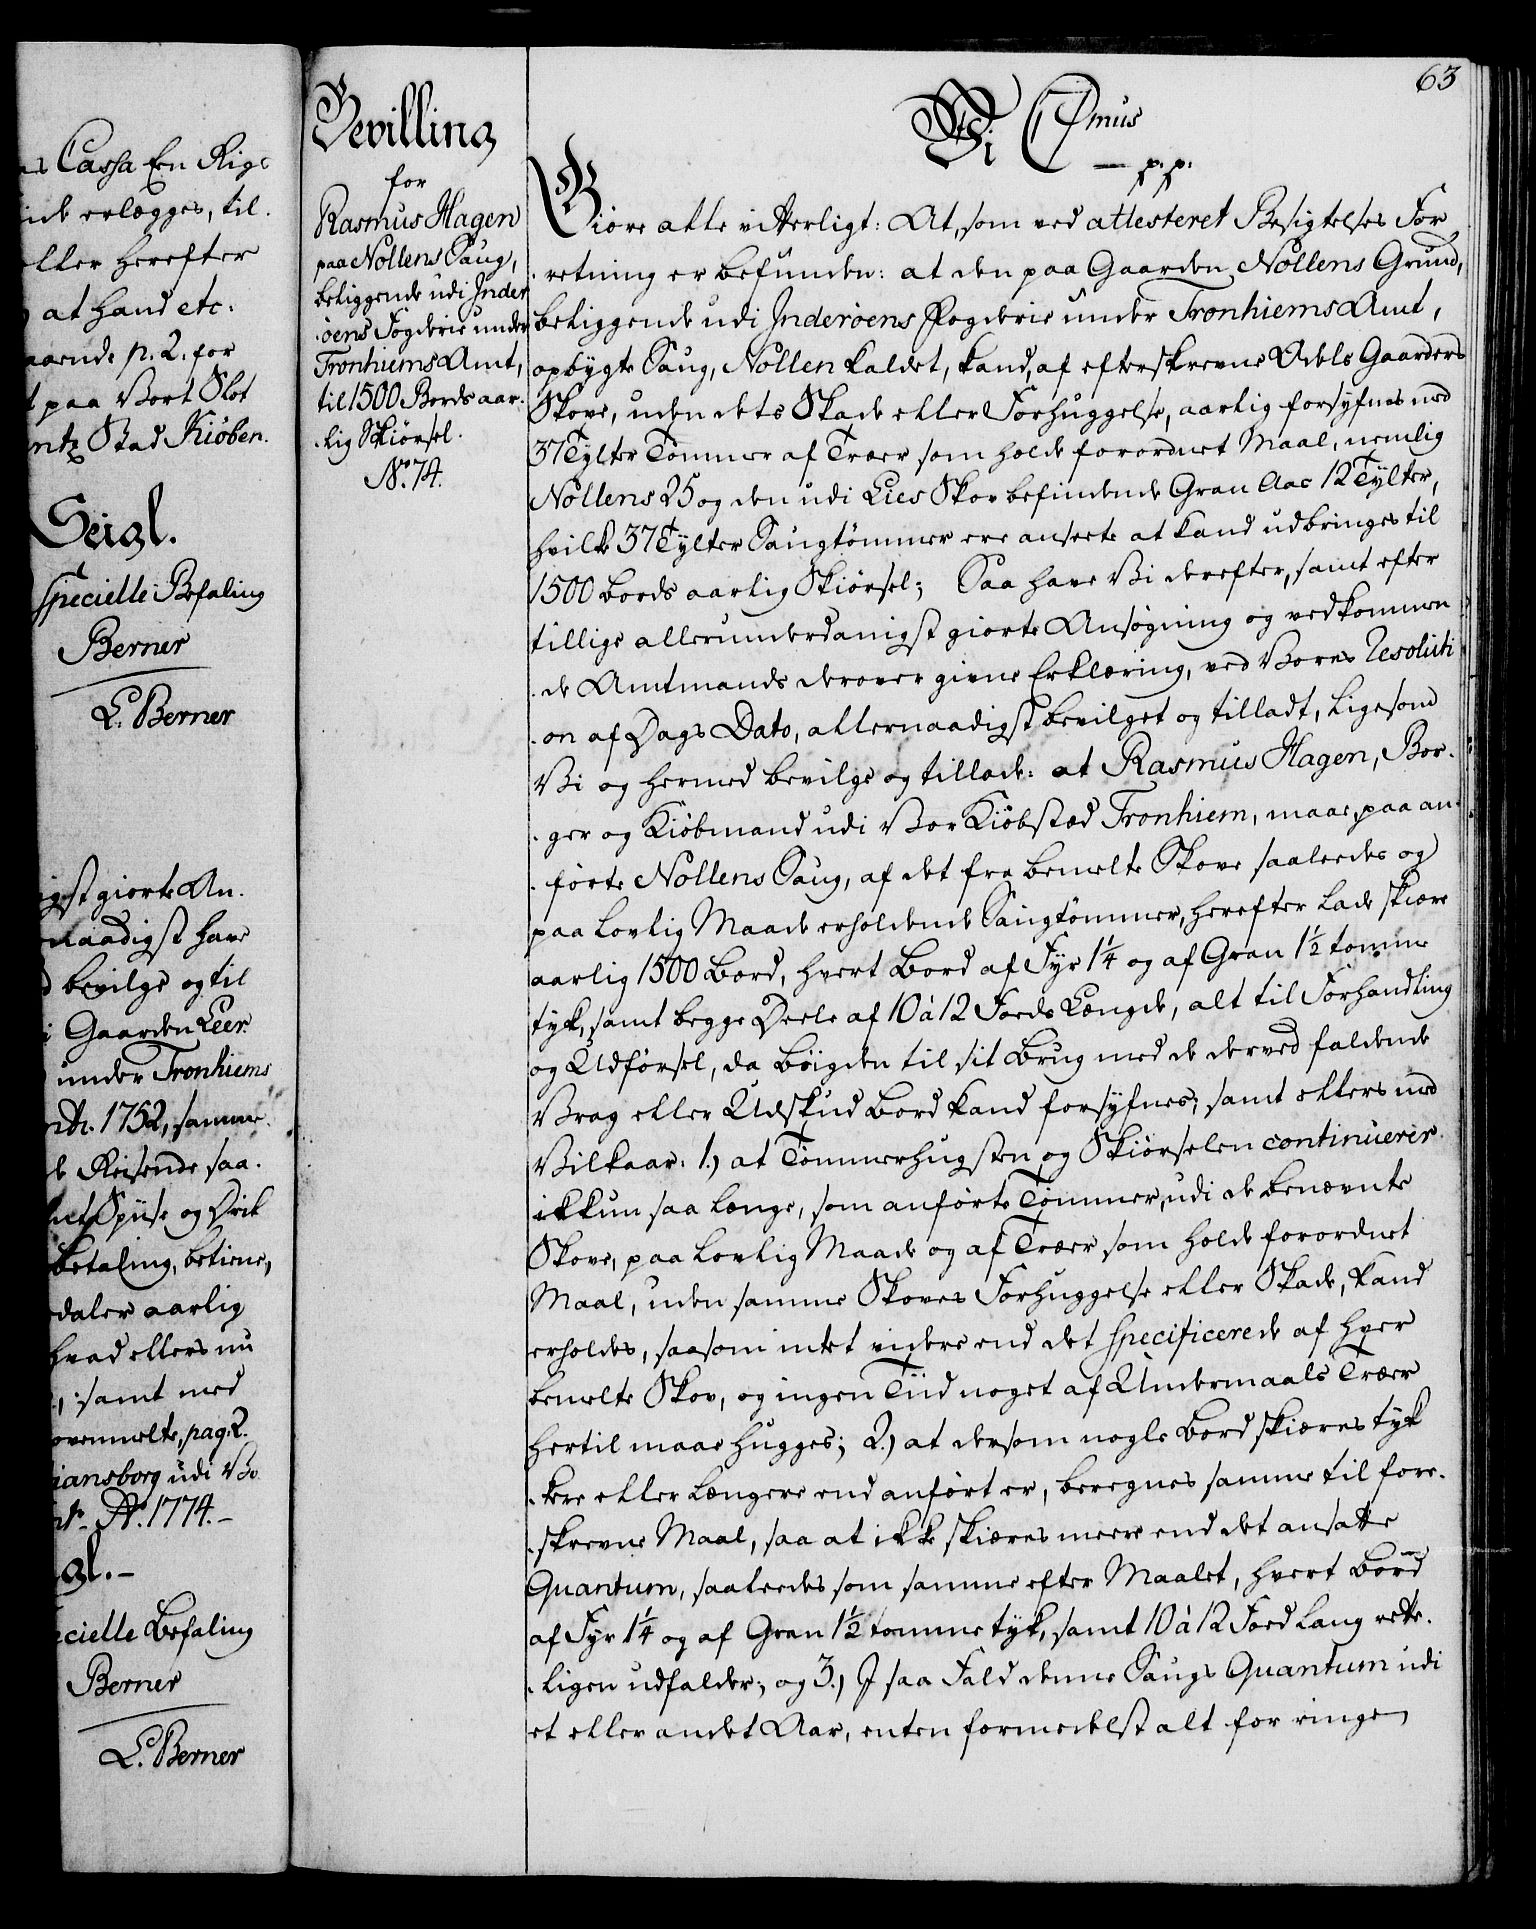 ns Cassa Een Rigs
inde erlægges, til.
eller herefter
at hand etc.
aaende p. 2. for
paa Vort Slot
Stad Kiøben.
Seigl.
specielle Befaling
Berner
L. Berner
igst giorte An.
naadigst have
bevilge og til
Gaarden Leer.
under Tronhiems
1752, samme.
de Reisende saa.
Spiise og Drik
betaling, betiene,
daler aarlig
hvad ellers nu
samt med
ovenmelte, pag. 2.
iansborg udi Vo
Ao. 1774.–
gl.–
ecielle Befaling
Berner
L. Berner
Bevilling
for
Rasmus Hagen
paa Nollens Saug,
beliggende udi Inder
öens Fogderie under
Tronhiems Amt,
til 1500 Bords aar.
.lig Skiørsel.
No. 74.
63
Vi C 7mus
— p. p.
Giøre alle vitterligt: At, som ved attesteret Besigtelses For
.retning er befunden: at den paa Gaarden Nollens Grund,
beliggende udi Inderöens Fogderie under Tronhiems Amt,
opbygte Saug, Nollen kaldet, kand, af efterskrevne Odels Gaarders
Skove, uden dets Skade eller Forhuggelse, aarlig forsyfnes med
37 Tylter Tømmer af Træer som holde forordnet Maal, nemlig
Nollens 25 og den udi Lies Skov befindende Gran Aas 12 Tylter,
hvilke 37 Tylter Saugtømmer ere ansete at kand udbringes til
1500 bords aarlig Skiørsel; Saa have Vi derefter, samt efter
tillige allerunderdanigst giorte Ansøgning og vedkommen
.de Amtmands derover givne Erklæring, ved Vores Resoluti
.on af Dags Dato, allernaadigst bevilget og tilladt, ligesom
Vi og hermed bevilge og tillade: at Rasmus Hagen, Bor.
.ger og Kiøbmand udi Vor Kiøbstæd Tronhiem, maae, paa an.
.førte Nollens Saug, af det fra bemelte Skove saaleedes og
paa lovlig Maade erholdende Saugtømmer, herefter lade skiære
aarlig 1500 Bord, hvert Bord af Fyr 1¼ og af Gran 1½ tomme
tyk, samt begge Deele af 10 à 12 Foeds Længde, alt til Forhandling
og Udførsel, da bøigden til sit brug med de derved faldende
Vrag eller Udskud bord kand forsyfnes; samt ellers med
Vilkaar: 1.) at Tømmerhugsten og Skiørselen continuerer
ikkun saa længe, som anførte Tømmer, udi de benævnte
Skove, paa lovlig Maade og af Træer som holde forordnet
Maal, uden samme Skoves Forhuggelse eller Skade, kand
erholdes, saasom intet videre end det specificerede af hver
bemelte Skov, og ingen Tiid noget af Undermaals Træer
hertil maae hugges; 2.) at dersom nogle bord skiæres tyk
.kere eller længere end anført er, beregnes samme til fore.
.skrevne Maal, saa at ikke skiæres meere end det ansatte
Quantum, saaleedes som samme efter Maalet, hvert bord
af Fyr 1¼ og af Gran 1½ tomme tyk, samt 10 à 12 Foed lang rette.
.ligen udfalder; og 3.) I saa Fald denne Saugs Quantum udi
et eller andet Aar, enten formedelst alt for ringe